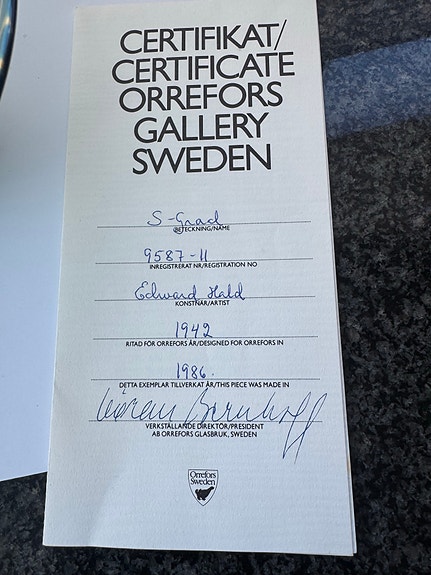 CERTIFIKAT/
CERTIFICATE
ORREFORS
GALLERY
SWEDEN
S-Graal
BETECKNING/NAME
9587-11
INREGISTRERAT NR/REGISTRATION NO
Edward Hald
KONSTNÄR/ARTIST
1942
RITAD FÖR ORREFORS ÅR/DESIGNED FOR ORREFORS IN
1986.
DETTA EXEMPLAR TILLVERKAT ÅR/THIS PIECE WAS MADE IN
Göran Bernhoff
VERKSTÄLLANDE DIREKTÖR/PRESIDENT
AB ORREFORS GLASBRUK, SWEDEN
Orrefors
Sweden